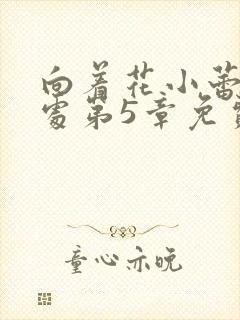 向着花小蕾
处第5章免费
童心亦晚